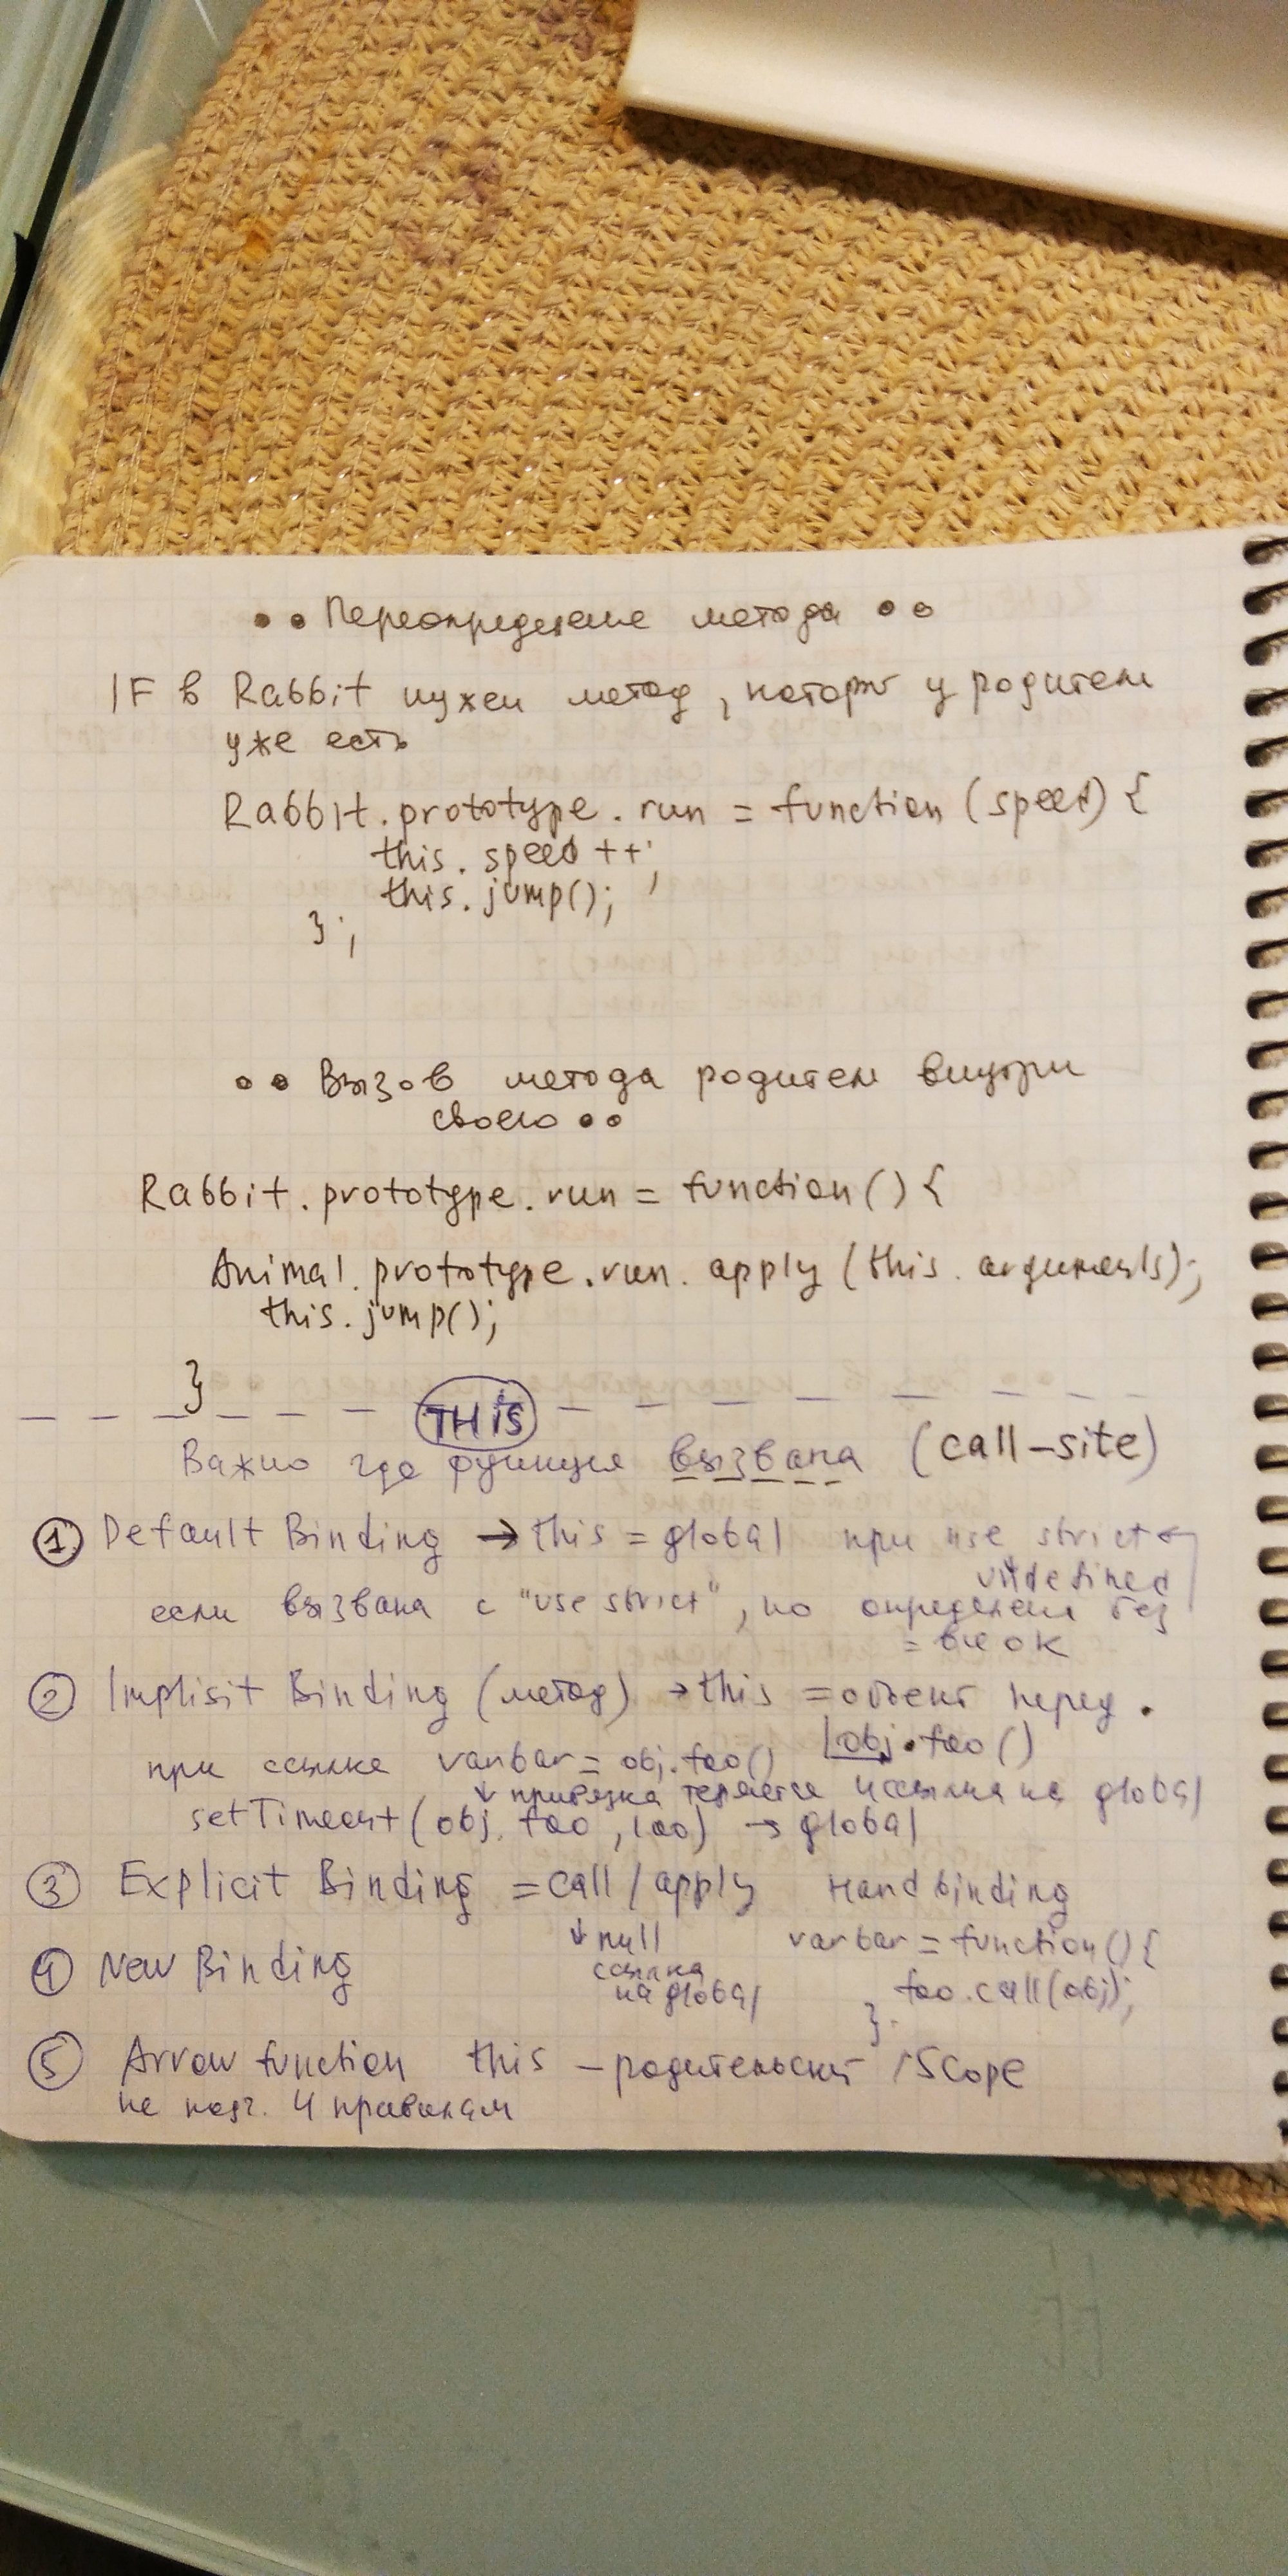 •• Переопределение метода ••
IF в Rabbit нужен метод, который у родителя
уже есть
Rabbit.prototype.run = function (speed) {
this.speed ++;
this.jump();
};
•• Вызов метода родителя внутри
своего ••
Rabbit.prototype.run = function() {
Animal.prototype.run.apply (this.arguments);
this.jump();
}
THIS
Важно где функция вызвана (call-site)
① Default Binding → this = global при use strict ←
undefined
если вызвана с "use strict", но определена без
= все ок
② Implisit Binding (метод) → this = объект перед .
obj.foo()
при ссылке var bar = obj.foo()
↓ привязка теряется и ссылка на global
setTimeout (obj.foo, 100) → global
③ Explicit Binding = call / apply Hand binding
↓ null var bar = function() {
④ New Binding ссылка
на global foo.call(obj);
}
⑤ Arrow function this – родительский scope
не подч. 4 правилам